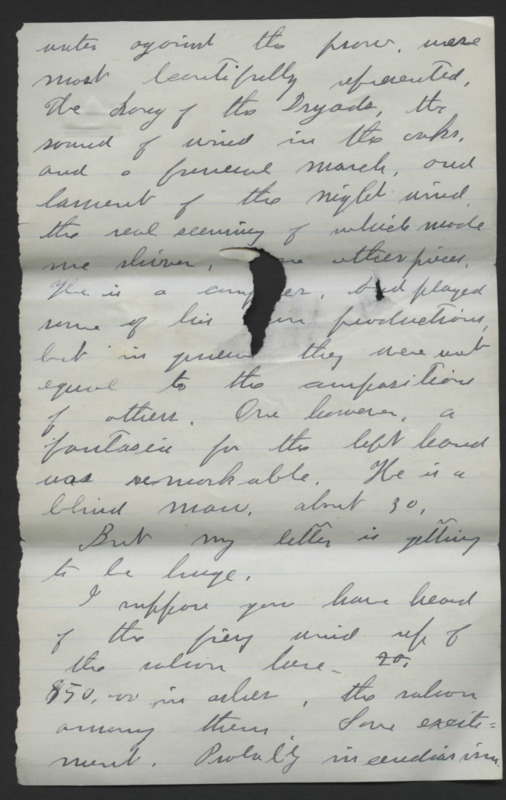 water against the prow, were
most beautifully represented,
The Song of the Dryads, the
sound of wind in the oaks,
and a funeral march, and
lament of the night wind,
the real seeming of which made
me shiver, other pieces.
He is a com er, and played
some of his productions,
but in they were not
equal to the compositions
of others. One however, a
fantasia for the left hand
was remarkable. He is a
blind man, about 30.
But my letter is getting
to be huge.
I suppose you have heard
of the up of
the saloon here -
$50,00 in ashes, the saloon
among them. Some excite-
ment. Probably incendiarism.